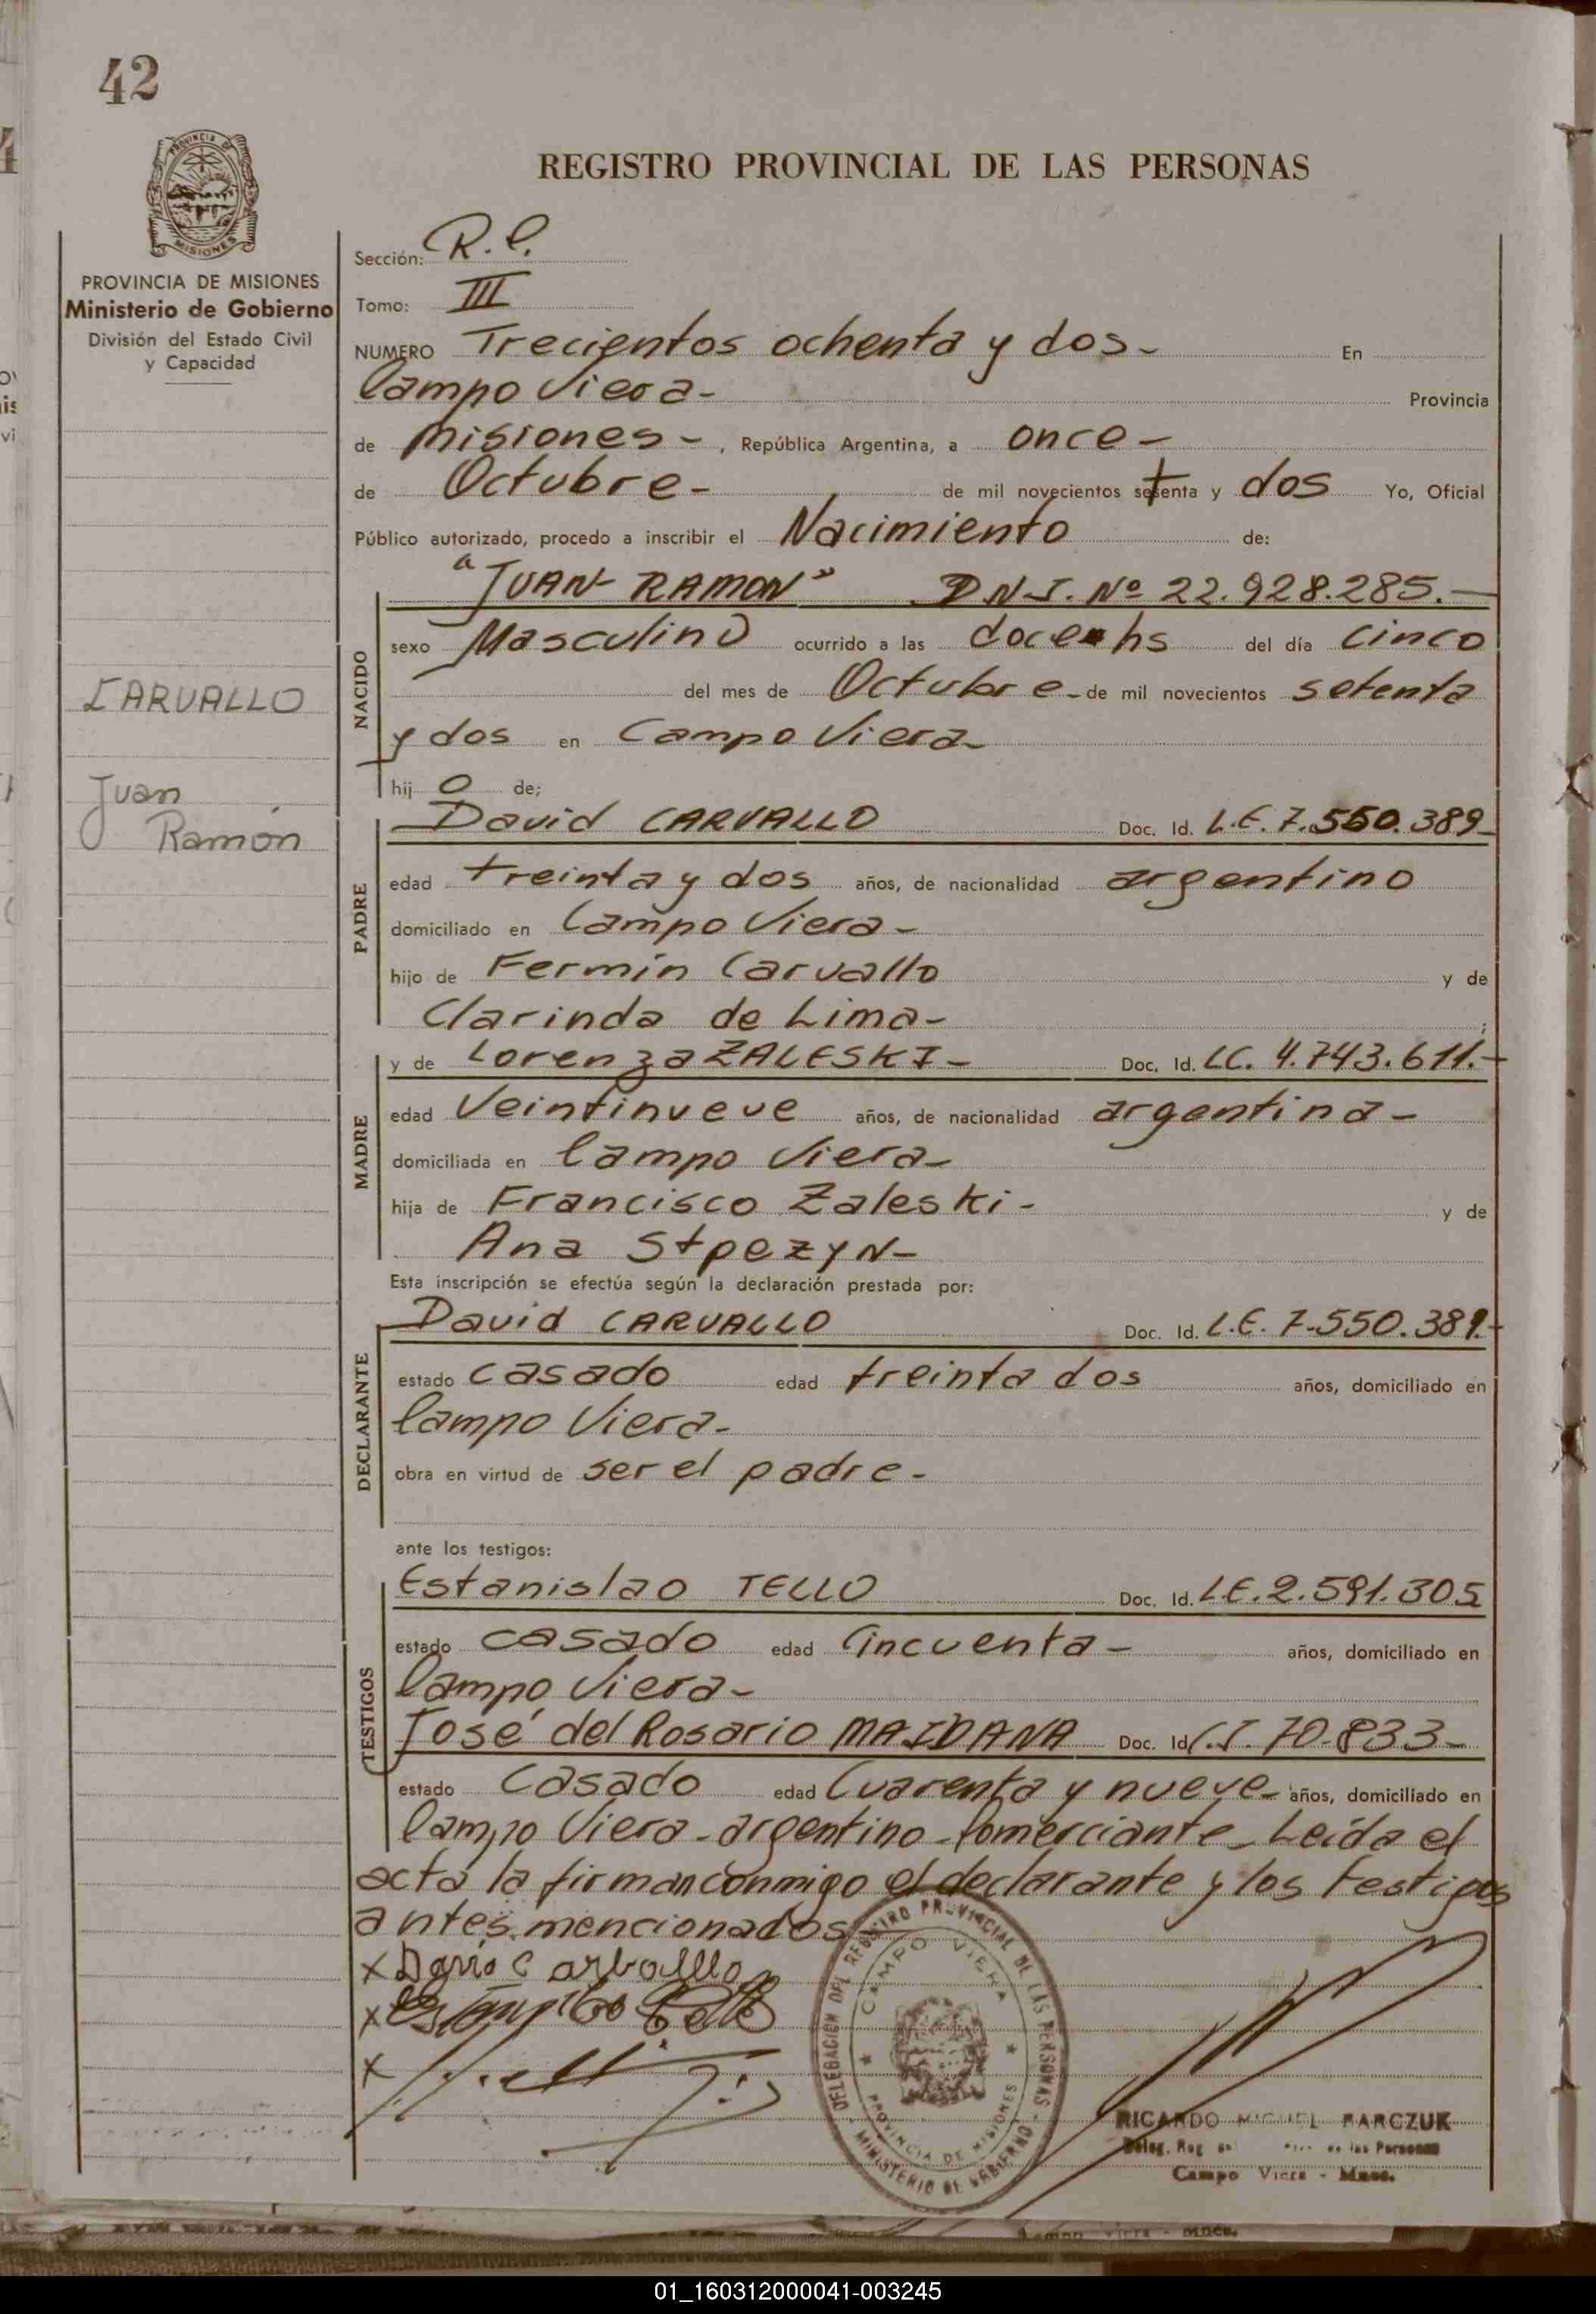 42
PROVINCIA DE
MISIONES
PROVINCIA DE MISIONES
Ministerio de Gobierno
División del Estado Civil
y Capacidad
CARVALLO
Juan
Ramón
REGISTRO PROVINCIAL DE LAS PERSONAS
Sección: R.C.
Tomo: III
NUMERO Trecientos ochenta y dos- En
Campo Viera- Provincia
de Misiones-, República Argentina, a once-
de Octubre- de mil novecientos setenta y dos Yo, Oficial
Público autorizado, procedo a inscribir el Nacimiento de:
NACIDO
"JUAN RAMON" D.N.I. Nº 22.928.285.-
sexo Masculino ocurrido a las doce hs del día cinco
del mes de Octubre- de mil novecientos setenta
y dos en Campo Viera-
hij o de;
PADRE
David CARVALLO Doc. Id. L.E. 7.550.389-
edad treinta y dos años, de nacionalidad argentino
domiciliado en Campo Viera-
hijo de Fermín Carvallo y de
Clarinda de Lima- ;
MADRE
y de Lorenza ZALESKI- Doc. Id. LC. 4.743.611.-
edad Veintinueve años, de nacionalidad argentina-
domiciliada en Campo Viera-
hija de Francisco Zaleski- y de
Ana StpezyN-
Esta inscripción se efectúa según la declaración prestada por:
DECLARANTE
David CARVALLO Doc. Id. L.E. 7.550.389.-
estado casado edad treinta dos años, domiciliado en
Campo Viera-
obra en virtud de ser el padre-
ante los testigos:
TESTIGOS
Estanislao TELLO Doc. Id. L.E. 2.591.305
estado casado edad Cincuenta- años, domiciliado en
Campo Viera-
José del Rosario MAIDANA Doc. Id. C.I. 70.833-
estado Casado edad Cuarenta y nueve- años, domiciliado en
Campo Viera-argentino-Comerciante-Leída el
acta la firman conmigo el declarante y los testigos
antes mencionados
x Davio Carvalllo
x Estanislao Tello
x
DELEGACION DEL REGISTRO PROVINCIAL DE LAS PERSONAS
MINISTERIO DE GOBIERNO
CAMPO VIERA
PROVINCIA DE MISIONES
RICARDO MIGUEL BARCZUK
Deleg. Reg. de las Personas
Campo Viera - Mnes.
Campo Viera - Mnes.
01_160312000041-003245